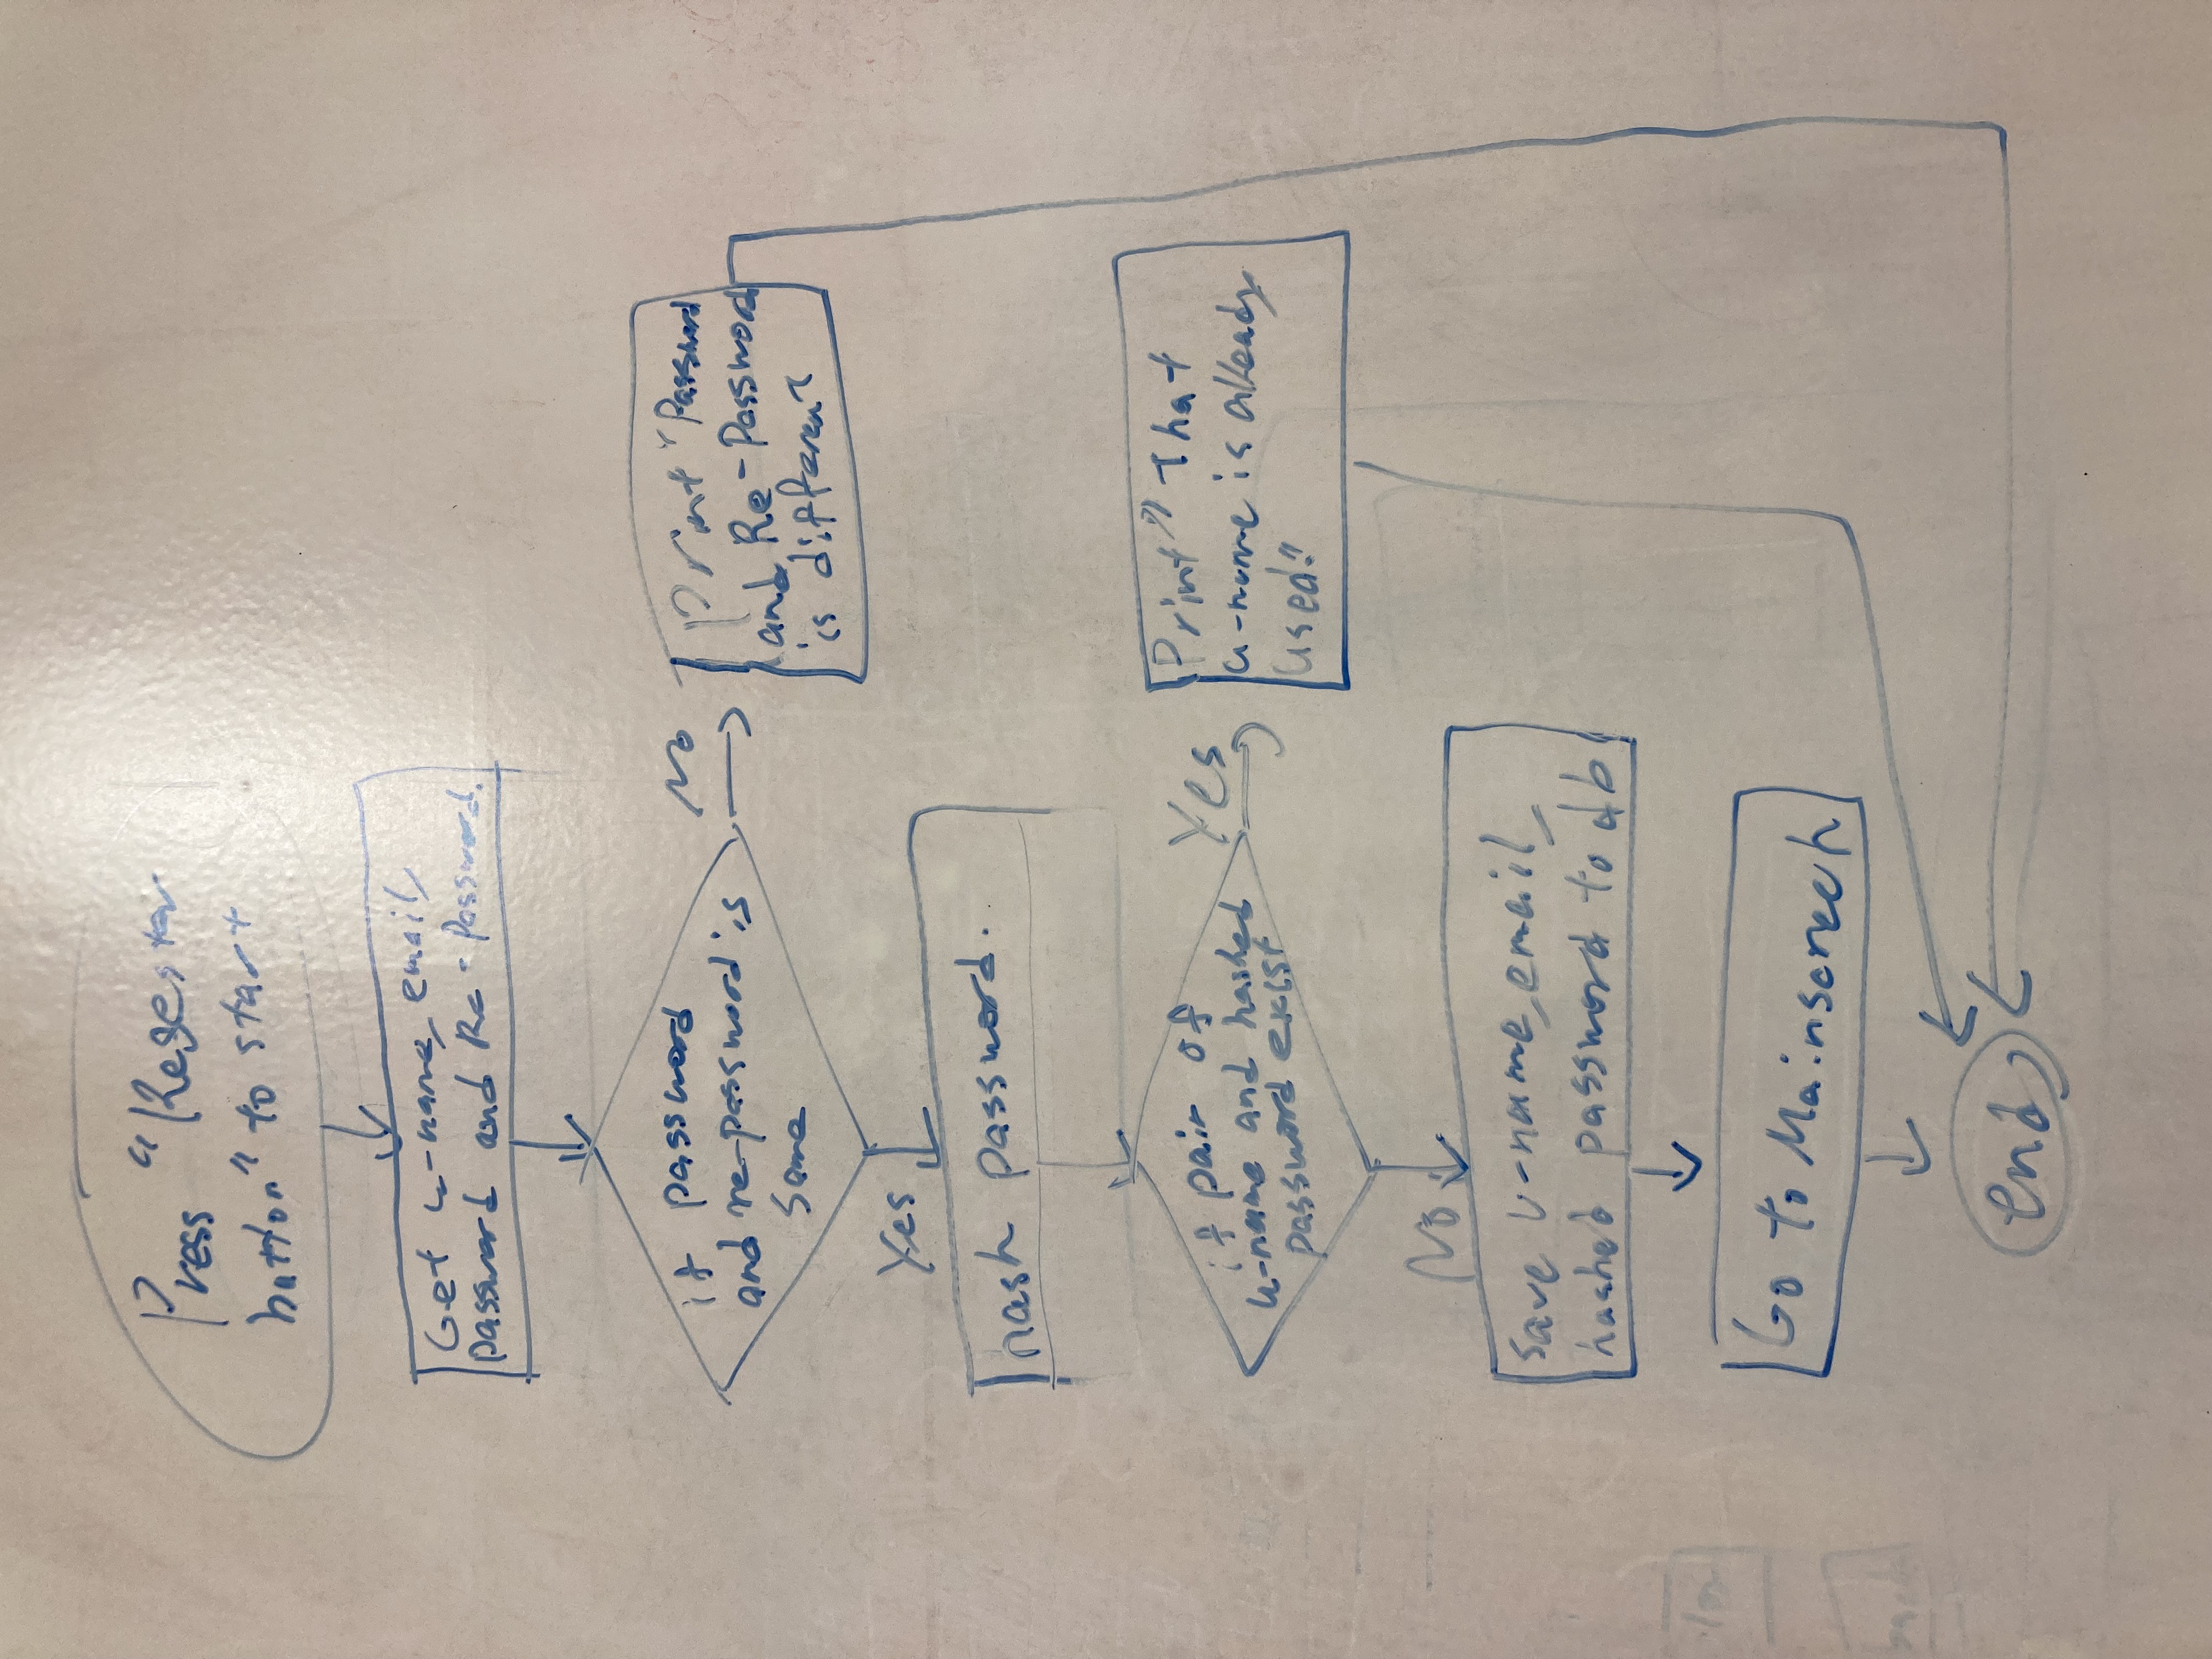 Press "Regester
button" to start
Get u-name, email,
password and Re-Password.
if password
and re-password is
same
No
Print "Password
and Re-Password
is different
Yes
hash password.
if pair of
u-name and hashed
password exist
Yes
Print" That
u-name is already
used."
No
save u-name, email,
hashed password to db
Go to Mainscreen
end